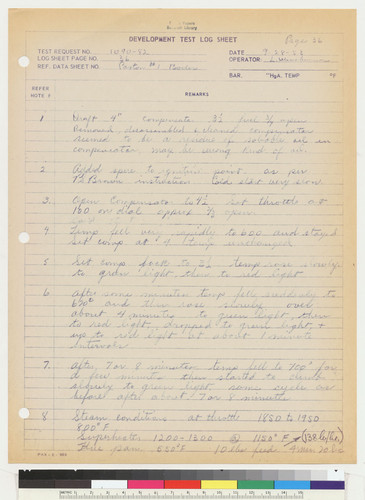 DEVELOPMENT TEST LOG SHEET
Page 26
TEST REQUEST NO. 1090-52
DATE
LOG SHEET PAGE NO. 26
OPERATOR
REF. DATA SHEET NO.
BAR. "HgA. TEMP °F
REFER
NOTE #
REMARKS
1 Draft 4" compensator 3½ fuel open
Removed, disassembled & cleaned compensator
seemed to be a squeak if robotic oil in
compensator may be wrong kind of oil
2 Added spare to igniture point. as per
instruction Cold start very slow.
3. Open Compensator to 4½ Set throttle at
150 on dial approx open
4. Temp fell very rapidly to 600 and stayed
Set comp at 4 temp unchanged
5 Set comp back to 3½ temp rose slowly
to green light, then to red light
6 After some minutes temp fell suddenly to
650° and then rose slowly over
about 4 minutes to green light, then
to red light, dropped to green light, &
up to red light at about 1 minute
intervals.
7. After 7 or 8 minutes temp fell to 700° for
a few minutes then started to climb
to green light same cycle as
before after about 7 or 8 minutes
8 Steam conditions at throttle 1850 to 1950
800° F
Superheater 1200-1600 @ 1150° F
600° F 10 lbs feed